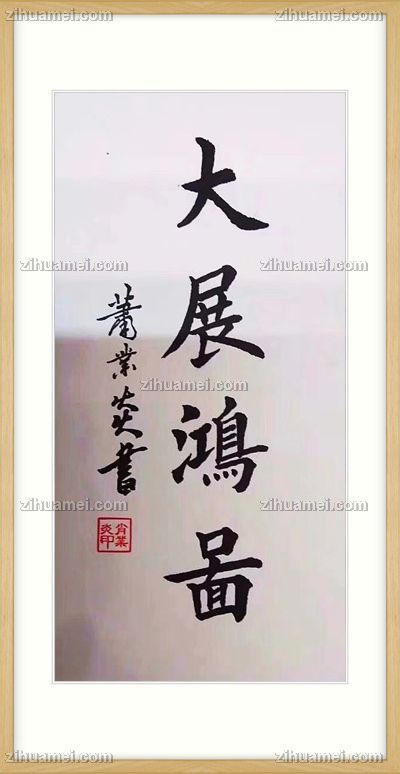 大展鴻啚
蕭業炎書
肖業炎印
zihuamei.com zihuamei.com
zihuamei.com
zihuamei.com zihuamei.com
zihuamei.com
zihuamei.com zihuamei.com
zihuamei.com
zihuamei.com zihuamei.com